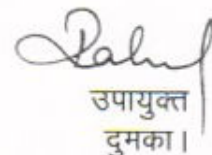 उपायुक्त
दुमका।